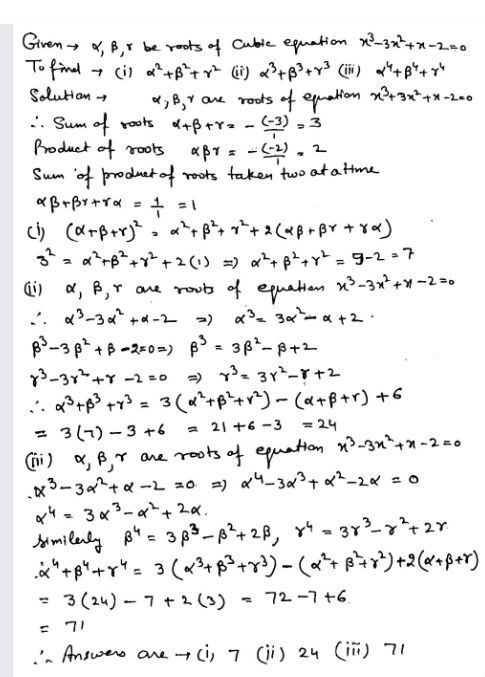 Given → α, β, γ be roots of Cubic equation x³-3x²+x-2=0
To find → (i) α²+β²+γ² (ii) α³+β³+γ³ (iii) α⁴+β⁴+γ⁴
Solution → α, β, γ are roots of equation x³+3x²+x-2=0
∴ Sum of roots α+β+γ = -(-3)/1 = 3
Product of roots αβγ = -(-2)/1 = 2
Sum of product of roots taken two at a time
αβ+βγ+γα = 1/1 = 1
(i) (α+β+γ)² = α²+β²+γ²+2(αβ+βγ+γα)
3² = α²+β²+γ²+2(1) ⇒ α²+β²+γ² = 9-2 = 7
(ii) α, β, γ are roots of equation x³-3x²+x-2=0
∴ α³-3α²+α-2 ⇒ α³ = 3α²-α+2.
β³-3β²+β-2=0 ⇒ β³ = 3β²-β+2
γ³-3γ²+γ-2=0 ⇒ γ³ = 3γ²-γ+2
∴ α³+β³+γ³ = 3(α²+β²+γ²)-(α+β+γ)+6
= 3(7)-3+6 = 21+6-3 = 24
(iii) α, β, γ are roots of equation x³-3x²+x-2=0
α³-3α²+α-2=0 ⇒ α⁴-3α³+α²-2α=0
α⁴ = 3α³-α²+2α.
Similerly β⁴ = 3β³-β²+2β, γ⁴ = 3γ³-γ²+2γ
∴ α⁴+β⁴+γ⁴ = 3(α³+β³+γ³)-(α²+β²+γ²)+2(α+β+γ)
= 3(24)-7+2(3) = 72-7+6
= 71
∴ Answers are → (i) 7 (ii) 24 (iii) 71